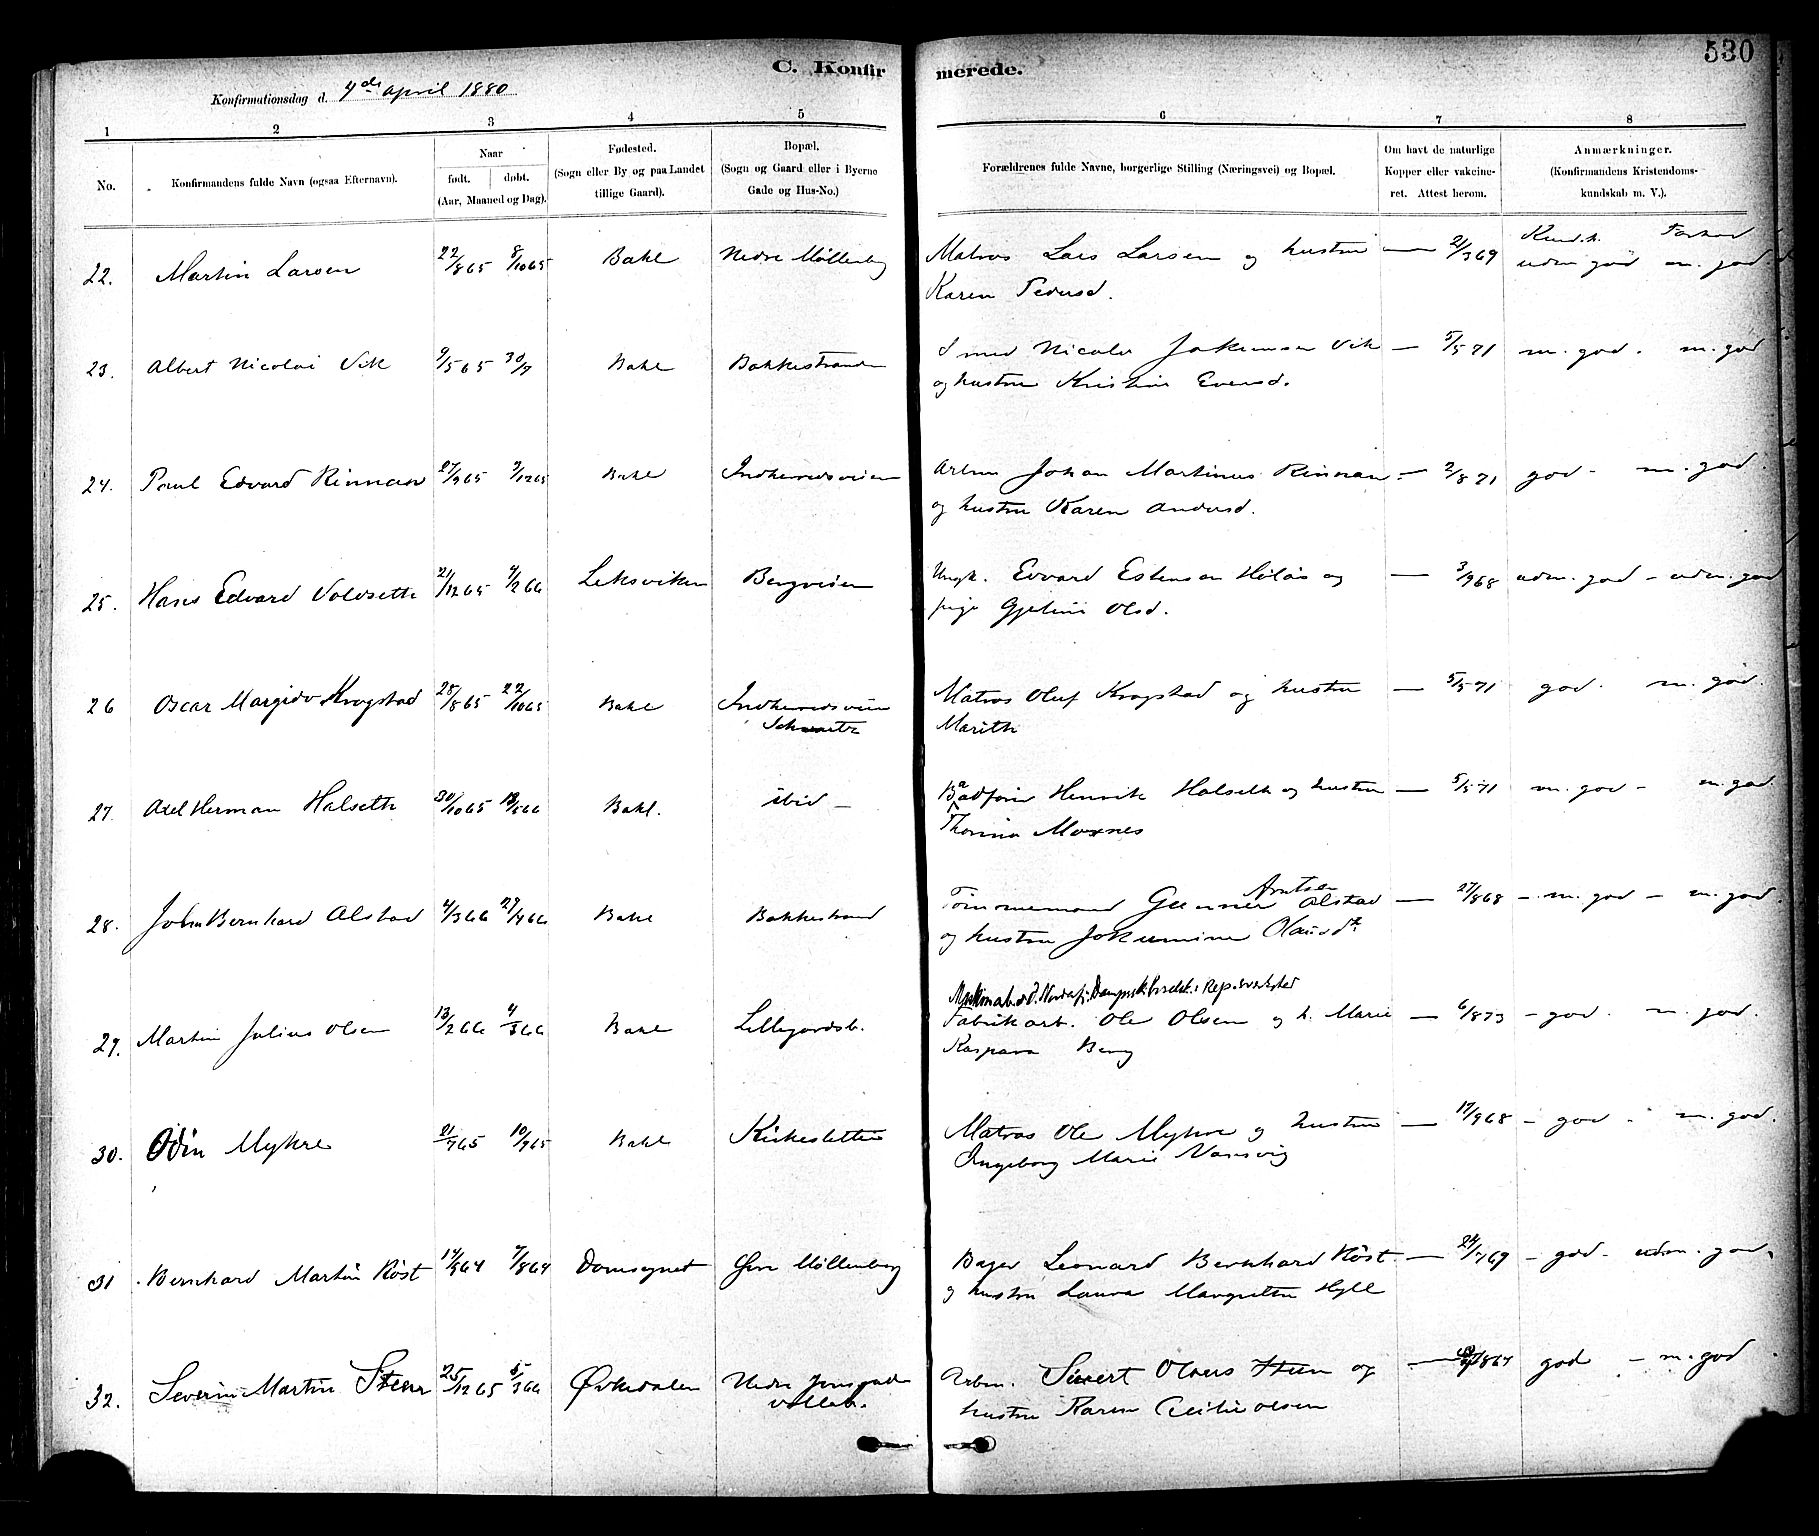 530
C. Konfirmerede.
Konfirmationsdag d. 4de april 1880
1 2 3 4 5 6 7 8
No.
Konfirmandens fulde Navn (ogsaa Efternavn).
Naar
født. døbt.
(Aar, Maaned og Dag).
Fødested.
(Sogn eller By og paa Landet
tillige Gaard).
Bopæl.
(Sogn og Gaard eller i Byerne
Gade og Hus-No.)
Forældrenes fulde Navne, borgerlige Stilling (Næringsvei) og Bopæl.
Om havt de naturlige
Kopper eller vakcine-
ret. Attest herom.
Anmærkninger.
(Konfirmandens Kristendoms-
kundskab m. V.).
22. Martin Larsen 22/8 65 8/10 65 Bakl Nedre Møllenbg Matros Lars Larsen og hustru — 21/3 69 udm god m. god
Karen Pedersd.
23. Albert Nicolai Vik 9/5 65 30/7 Bakl Bakkestranden Smed Nicolai Jokumsen Vik — 5/5 71 m. god. m. god
og hustru Kristine Evensd.
24. Paul Edvard Rinnan 27/9 65 3/12 65 Bakl Indherredsveien Arbm Johan Martinus Rinnan — 2/8 71 god - m. god.
og hustru Karen Andersd.
25. Hans Edvard Voldseth 21/12 65 4/2 66 Leksviken Bergveien Ungk. Edvard Estensen Hølås og — 3/9 68 udm. god - udm. god
pige Gjertine Olsd.
26 Oscar Margido Krogstad 28/8 65 22/10 65 Bakl Indherredsveien Matros Oluf Krogstad og hustru — 5/5 71 god. m. god.
Marith
27. Axel Herman Halseth 30/10 65 Bakl. ibid — Baadfører Henrik Halseth og hustru — 5/5 71 m. god - m. god.
Thorina Moxnes
28. John Bernhard Alstad 4/3 66 29/4 66 Bakl Bakkestrand Tømmermand Gunner Arntsen Alstad — 27/8 68 - m. god - m. god.
og hustru Jokumine Olausdt.
29. Martin Julius Olsen 13/2 66 4/3 66 Bakl Lillegardsb. Fabrikarb. Ole Olsen og h. Marie — 6/8 73 - god. m. god.
Kaspara Berg
30. Odin Myhre 21/7 65 10/9 65 Bakl Kirkesletten Matros Ole Myhre og hustru — 17/9 68 - god - m. god.
Ingeborg Marie Varsvig
31. Bernhard Martin Röst 7/8 64 Domsognet Øvre Møllenberg Bager Leonard Bernhard Röst — 24/7 69 - god - udm. god.
og hustru Laura Margrethe Hyll
32. Severin Martin Steen 25/12 65 5/3 66 Ørkedalen Nedre Arbm. Sivert Olsens Steen og — god - m. god
hustru Karen Cecilie Olsen